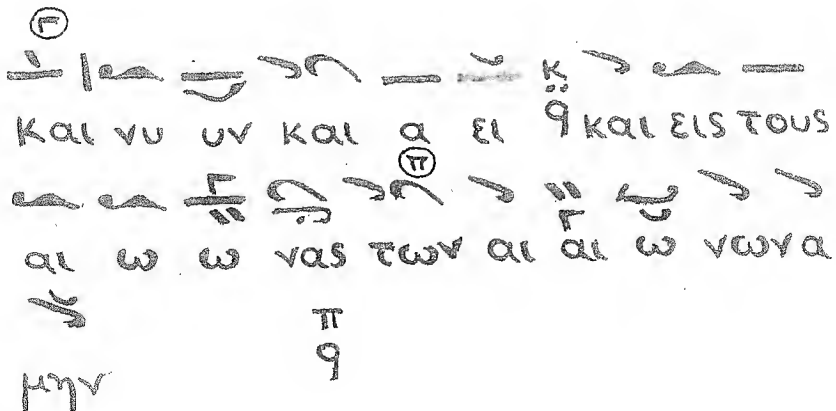 Γ
και νυ υν και α ει κ ϙ και εις τους
αι ω ω νας των αι αι ω νωνα
π
μην π ϙ